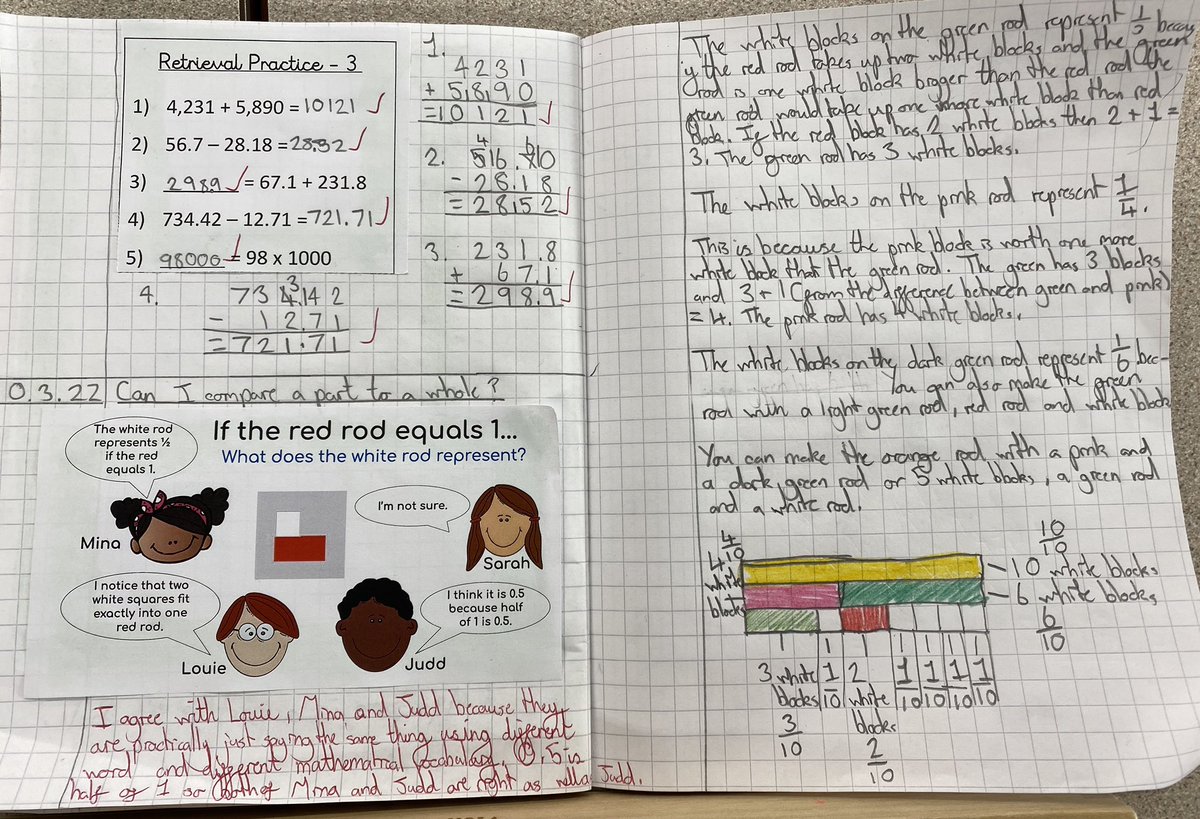 Retrieval Practice - 3
1) 4,231 + 5,890 = 10121
2) 56.7 – 28.18 = 28.52
3) 298.9 = 67.1 + 231.8
4) 734.42 – 12.71 = 721.71
5) 98000 = 98 x 1000
1.
4231
+ 5890
= 10121
2. 56.710
- 28.18
= 28.52
3. 231.8
+ 67.1
= 298.9
4. 734.142
- 12.71
= 721.71
0.3.22 Can I compare a part to a whole?
If the red rod equals 1...
What does the white rod represent?
The white rod
represents ½
if the red
equals 1.
Mina
I'm not sure.
Sarah
I notice that two
white squares fit
exactly into one
red rod.
Louie
I think it is 0.5
because half
of 1 is 0.5.
Judd
I agree with Louie, Mina and Judd because they
are practically just saying the same thing using different
word and different mathematical vocabulary. 0.5 is
half of 1 so both of Mina and Judd are right as well as Judd.
The white blocks on the green rod represent 1/3 becau
if the red rod takes up two white blocks and the green
rod is one white block bigger than the red rod the
green rod would take up one more white block than red
block. If the red block has 2 white blocks then 2 + 1 =
3. The green rod has 3 white blocks.
The white blocks on the pink rod represent 1/4.
This is because the pink block is worth one more
white block that the green rod. The green has 3 blocks
and 3 + 1 (from the difference between green and pink)
= 4. The pink rod has 4 white blocks.
The white blocks on the dark green rod represent 1/6 bec-
You can also make the green
rod with a light green rod, red rod and white block
You can make the orange rod with a pink and
a dark green rod or 5 white blocks, a green rod
and a white rod.
4/10
4
white
blocks
10/10
10 white blocks
6 white blocks
6/10
3 white
blocks
3/10
1/10
2
white
blocks
2/10
1/10 1/10 1/10 1/10